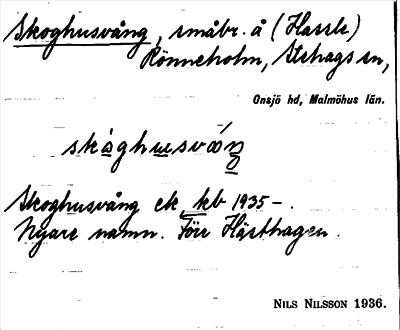 Skoghusvång, småbr. å (Hassle)
Rönneholm, Stehags sn,
Onsjö hd, Malmöhus län.
skåghusvåŋ
Skoghusvång ek kb 1935-.
Nyare namn. Förr Hästhagen.
NILS NILSSON 1936.